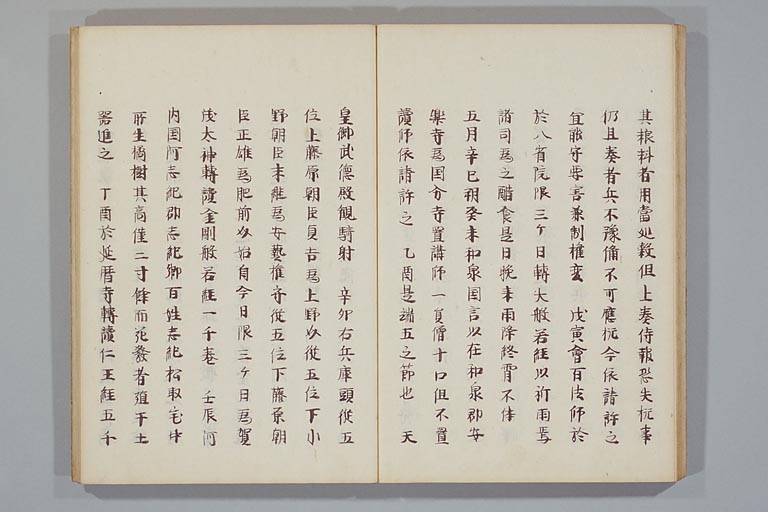 其粮料者用當処穀但上奏待報恐失机事
仍且奏者兵不豫備不可應机今依請許之
宜能守要害兼制權変 戊寅會百法師於
於八省院限三ケ日轉大般若経以祈雨焉
諸司為之醋食是日晚来雨降終霄不休
五月辛巳朔癸未和泉国言以在和泉郡安
樂寺為国分寺置講師一員僧十口但不置
讀師依請許之 乙酉是端五之節也 天
皇御武德殿観騎射 辛卯右兵庫頭従五
位上藤原朝臣貞吉為上野守従五位下小
野朝臣末継為安藝權守従五位下藤原朝
臣正雄為肥前守始自今日限三ケ日為賀
茂大神轉讀金剛般若経一千卷 壬辰河
内国阿志紀郡志紀郷百姓志紀松取宅中
所生橘樹其高僅二寸餘而花發者殖于土
器進之 丁酉於延暦寺轉讀仁王経五千